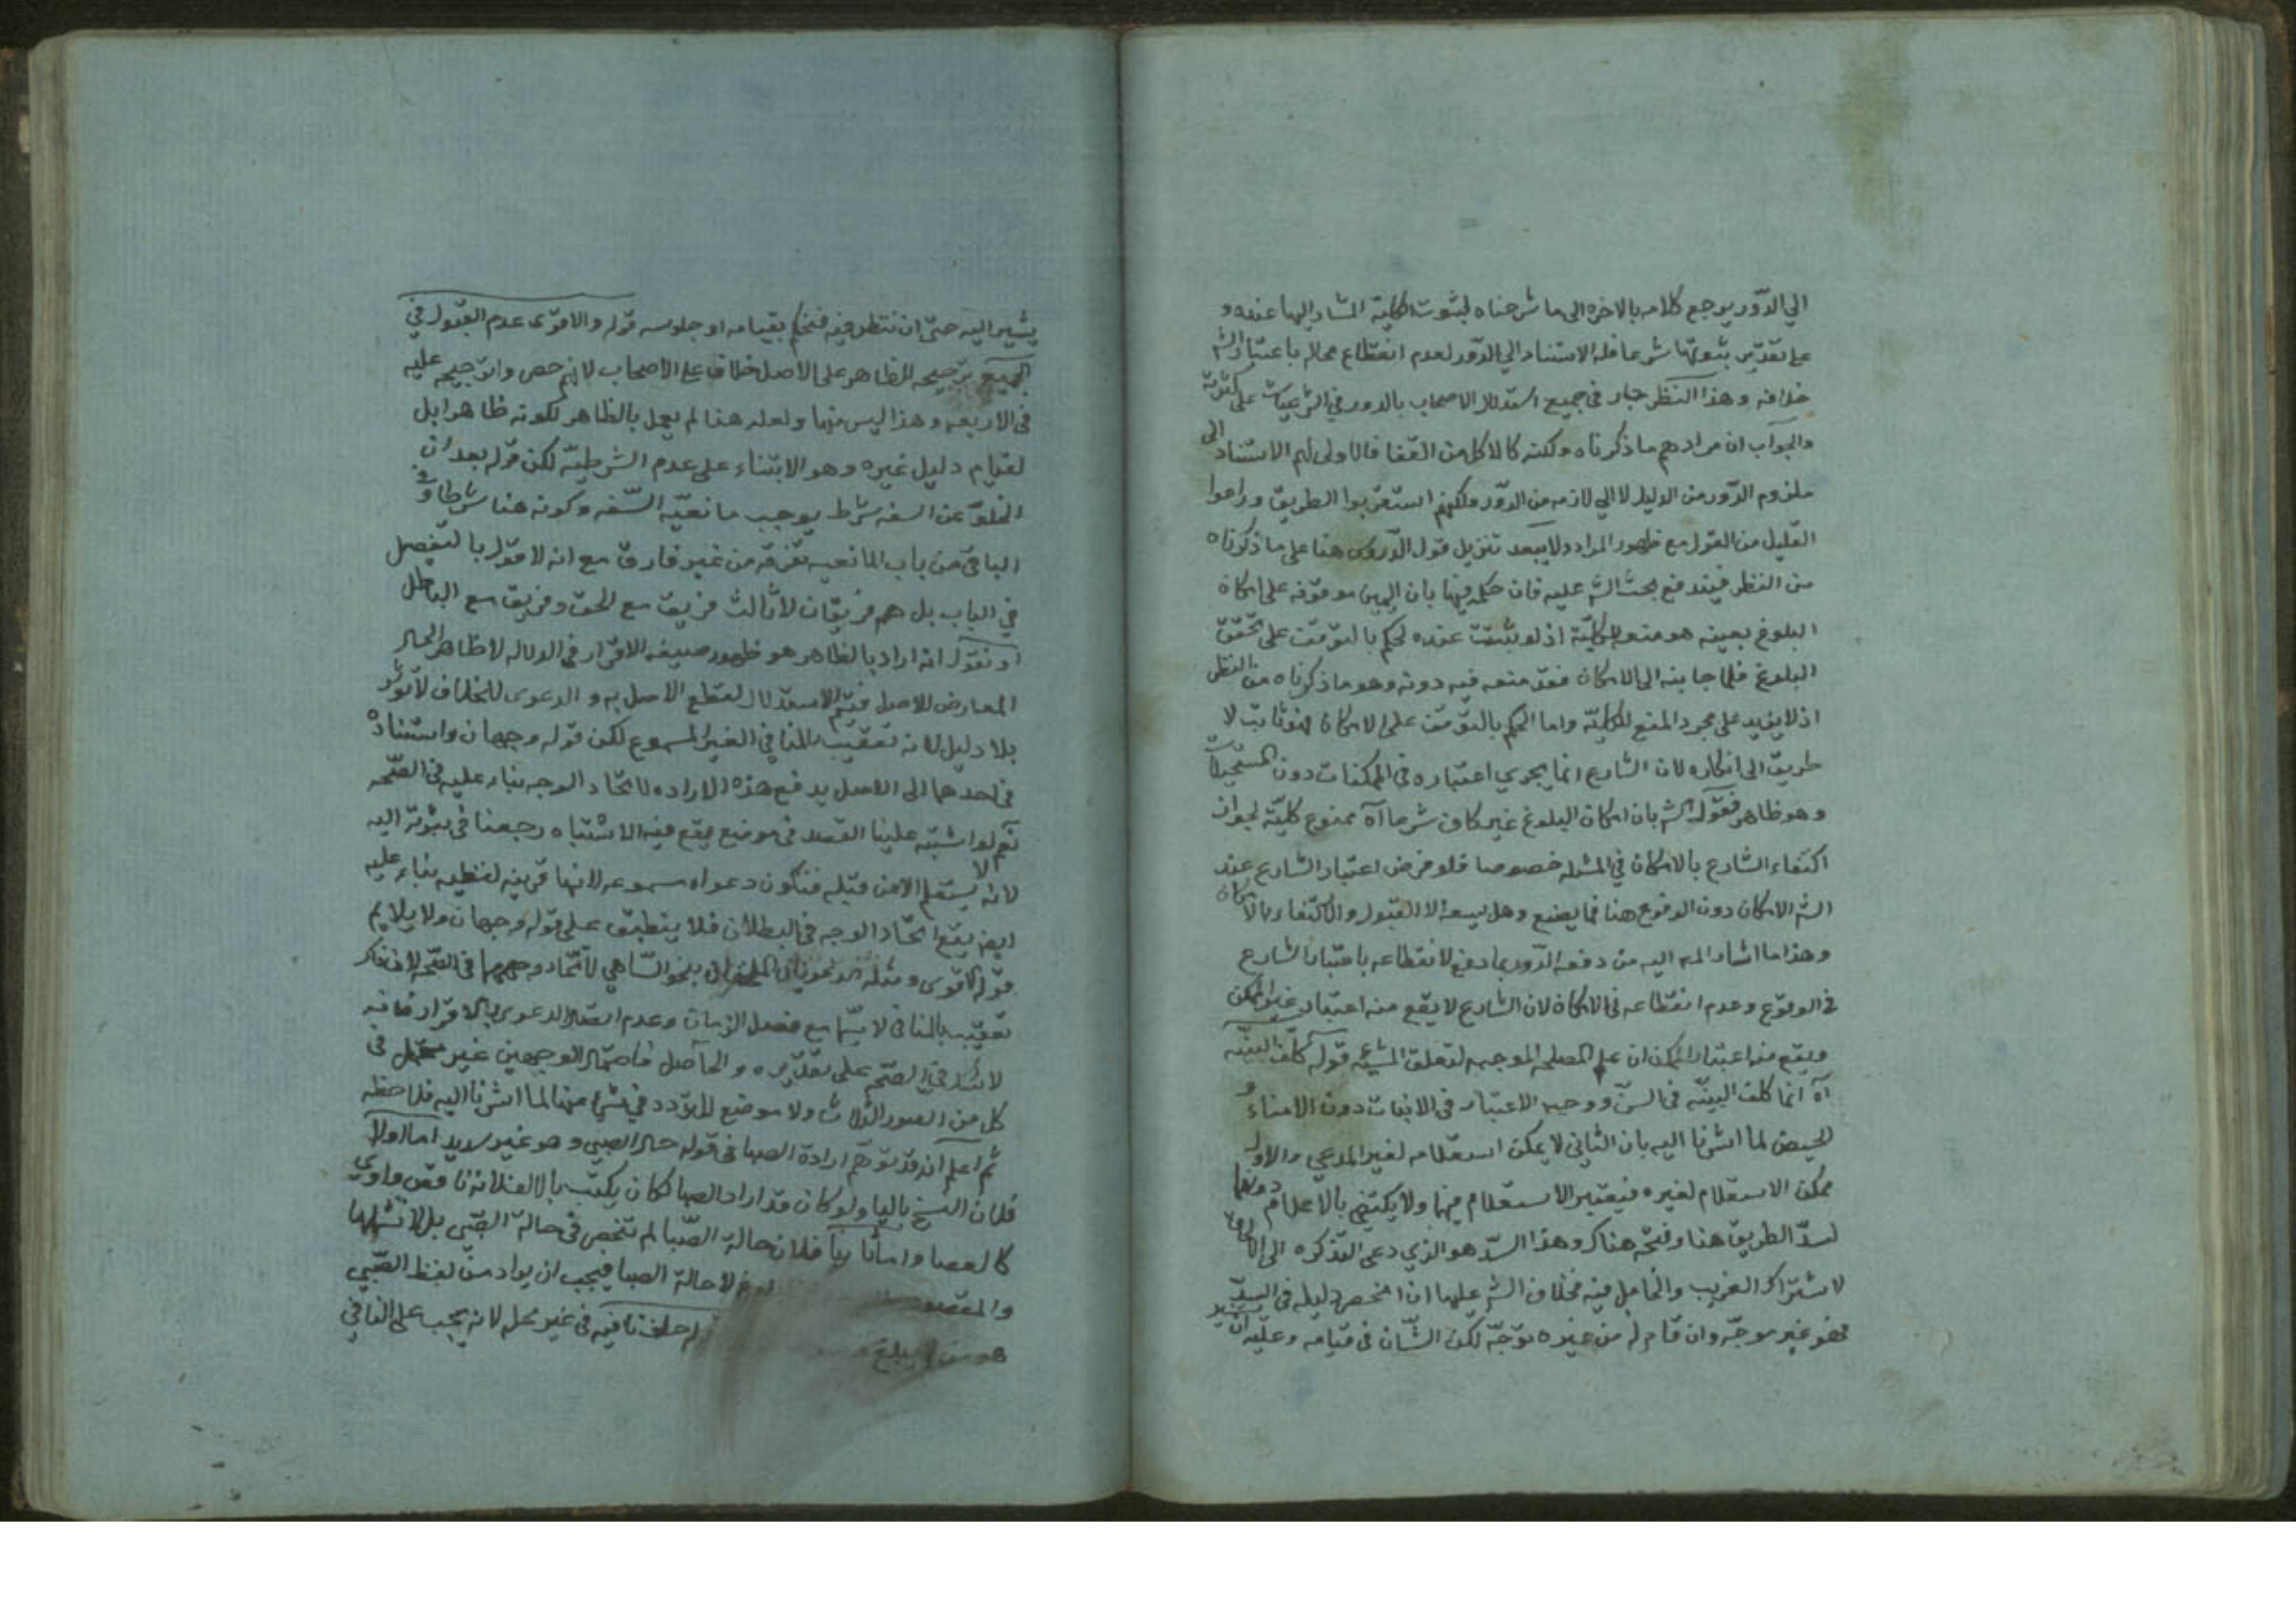 الي الدّور يرجع كلامه بالاخره الى ما شرحناه لثبوت الكلية المشار اليها عنده و
على تقدير ثبوتها شرعا فله الاستناد الي الدّور لعدم انقطاع محالم باعتبار الشه
خلافه وهذا النظر جار في جميع استدلال الاصحاب بالدور في الشرعيات على كثرته
والجواب ان مرادهم ما ذكرناه ولكنه كالاكل من القفا فالاولى لهم الاستناد الى
ملزوم الدّور من الدليل لا الي لازمه من الدّور ولكنهم استقربوا الطريق وراعوا
القليل من القول مع ظهور المراد ولا يبعد تنزيل قول الدّروس هنا على ما ذكرناه
من النظر فيندفع بحث الشه عليه فان حكمه فيها بان اليمين موقوفه على امكان
البلوغ بعينه هو منع للكليّة اذ لو ثبتت عنده لحكم بالتوقف على تحقق
البلوغ فلما جا بنه الى الامكان فقد منعه فيه دونه وهو ما ذكرناه من النظر
اذ لا يزيد على مجرد المنع للكليّة واما الحكم بالتوقف على الامكان فهو ثابت لا
طريق الى انكاره لان الشارع انما يجري اعتباره في الممكنات دون المستحيلات
وهو ظاهر فقول الشه بان امكان البلوغ غير كاف شرعا آه ممنوع كليّة لجواز
اكتفاء الشارع بالامكان في المسئله خصوصا فلو فرض اعتبار الشارع عند
الشه الامكان دون الوقوع هنا فما يصنع وهل يسعه الا القبول والاكتفاء بالامكان
وهذا ما اشار المه اليه من دفعه الدّور بما دفع لانقطاعه باعتبار الشارع
في الوقوع وعدم انقطاعه في الامكان لان الشارع لا يقع منه اعتبار غير الممكن
ويقع منه اعتبار الممكن ان علم المصلحه الموجبه لتعلق المشيّه قوله كلّف البيّنه
آه انما كلف البيّنه في السنّ ووجب الاعتبار في الانبات دون الامناء و
الحيض لما اشرنا اليه بان الثاني لا يمكن استعلامه لغير المدعي والاول
ممكن الاستعلام لغيره فيعتبر الاستعلام فيها ولا يكتفي بالاعلام دونهما
لسدّ الطريق هنا وفتحه هناك وهذا السدّ هو الذي دعى التذكره الى
لاشتراك الغريب والخامل فيه فخلاف الشه عليها ان انحصر دليله في السدّ
فهو غير موجّه وان قام له من غيره توجّه لكن الشّان في قيامه وعليه ان
يشير اليه حتّى ان ننظر فيه فنحكم بقيامه او جلوسه قوله والاقوى عدم القبول في
الجميع ترجيحه للظاهر على الاصل خلاف على الاصحاب لانهم حصر والترجيحه عليه
في الاربعه وهذا ليس منها ولعله هنا لم يعمل بالظاهر لكونه ظاهرا بل
لقيام دليل غيره وهو الابتناء على عدم الشرطيّة لكن قوله بعد ان
الخلوّ عن السفه شرط يوجب مانعيّه السّفه وكونه هنا شرطا و في
الباقي من باب المانعيه تفرقه من غير فارق مع انه لا قول بالتفصيل
في الباب بل هم فريقان لا ثالث فريق مع الحق وفريق مع الباطل
او نقول انه اراد بالظاهر هو ظهور صيغه الاقرار في الدلاله لا ظاهر الحال
المعارض للاصل فيتم الاستدلال لقطع الاصل به والدعوى للخلاف لا تؤثر
بلا دليل لانه تعقيب بالمنافي الغير المسموع لكن قوله وجهان واستناده
في احدهما الى الاصل يدفع هذه الاراده لاتحاد الوجه بناء عليه في الصّحه
نعم لو اشتبه علينا القصد في موضع يقع فيه الاشتباه رجعنا في ثبوته اليه
لانه لا يستعلم الا من قبله فتكون دعواه مسموعه لانها قرينه لفظيه بناء عليه
ايضا يقع اتحاد الوجه في البطلان فلا ينطبق على قوله وجهان ولا يلايم
قوله الاقوى ومثله بنحو السّاهي لاتحاد وجههما في الصّحه
تعقيب بالمنافي لا سيّما مع فصل الزمان وعدم اتصال الدعوى بالاقرار فانه
لا شك في الصّحه على تقديره والحاصل فاحتمال الوجهين غير محتمل في
كل من الصور الثلاث ولا موضع للتردد في شيء منها لما اشرنا اليه فلاحظه
ثم اعلم انه قد توهم ارادة الصبا في قوله حال الصبي وهو غير سديد اما اولا
فلان النسخ باليا ولو كان قد اراد الصبا لكان يكتب بالالف لانه ناقص واوي
كالعصا واما ثانيا فلان حالة الصّبا لم تنحصر في حالة الصّبي بل لا تشملها
والمقصود لا حالة الصبا فيجب ان يراد من لفظ الصّبي
هو من لم يبلغ حلف نافيه في غير محله لانه يجب على النافي